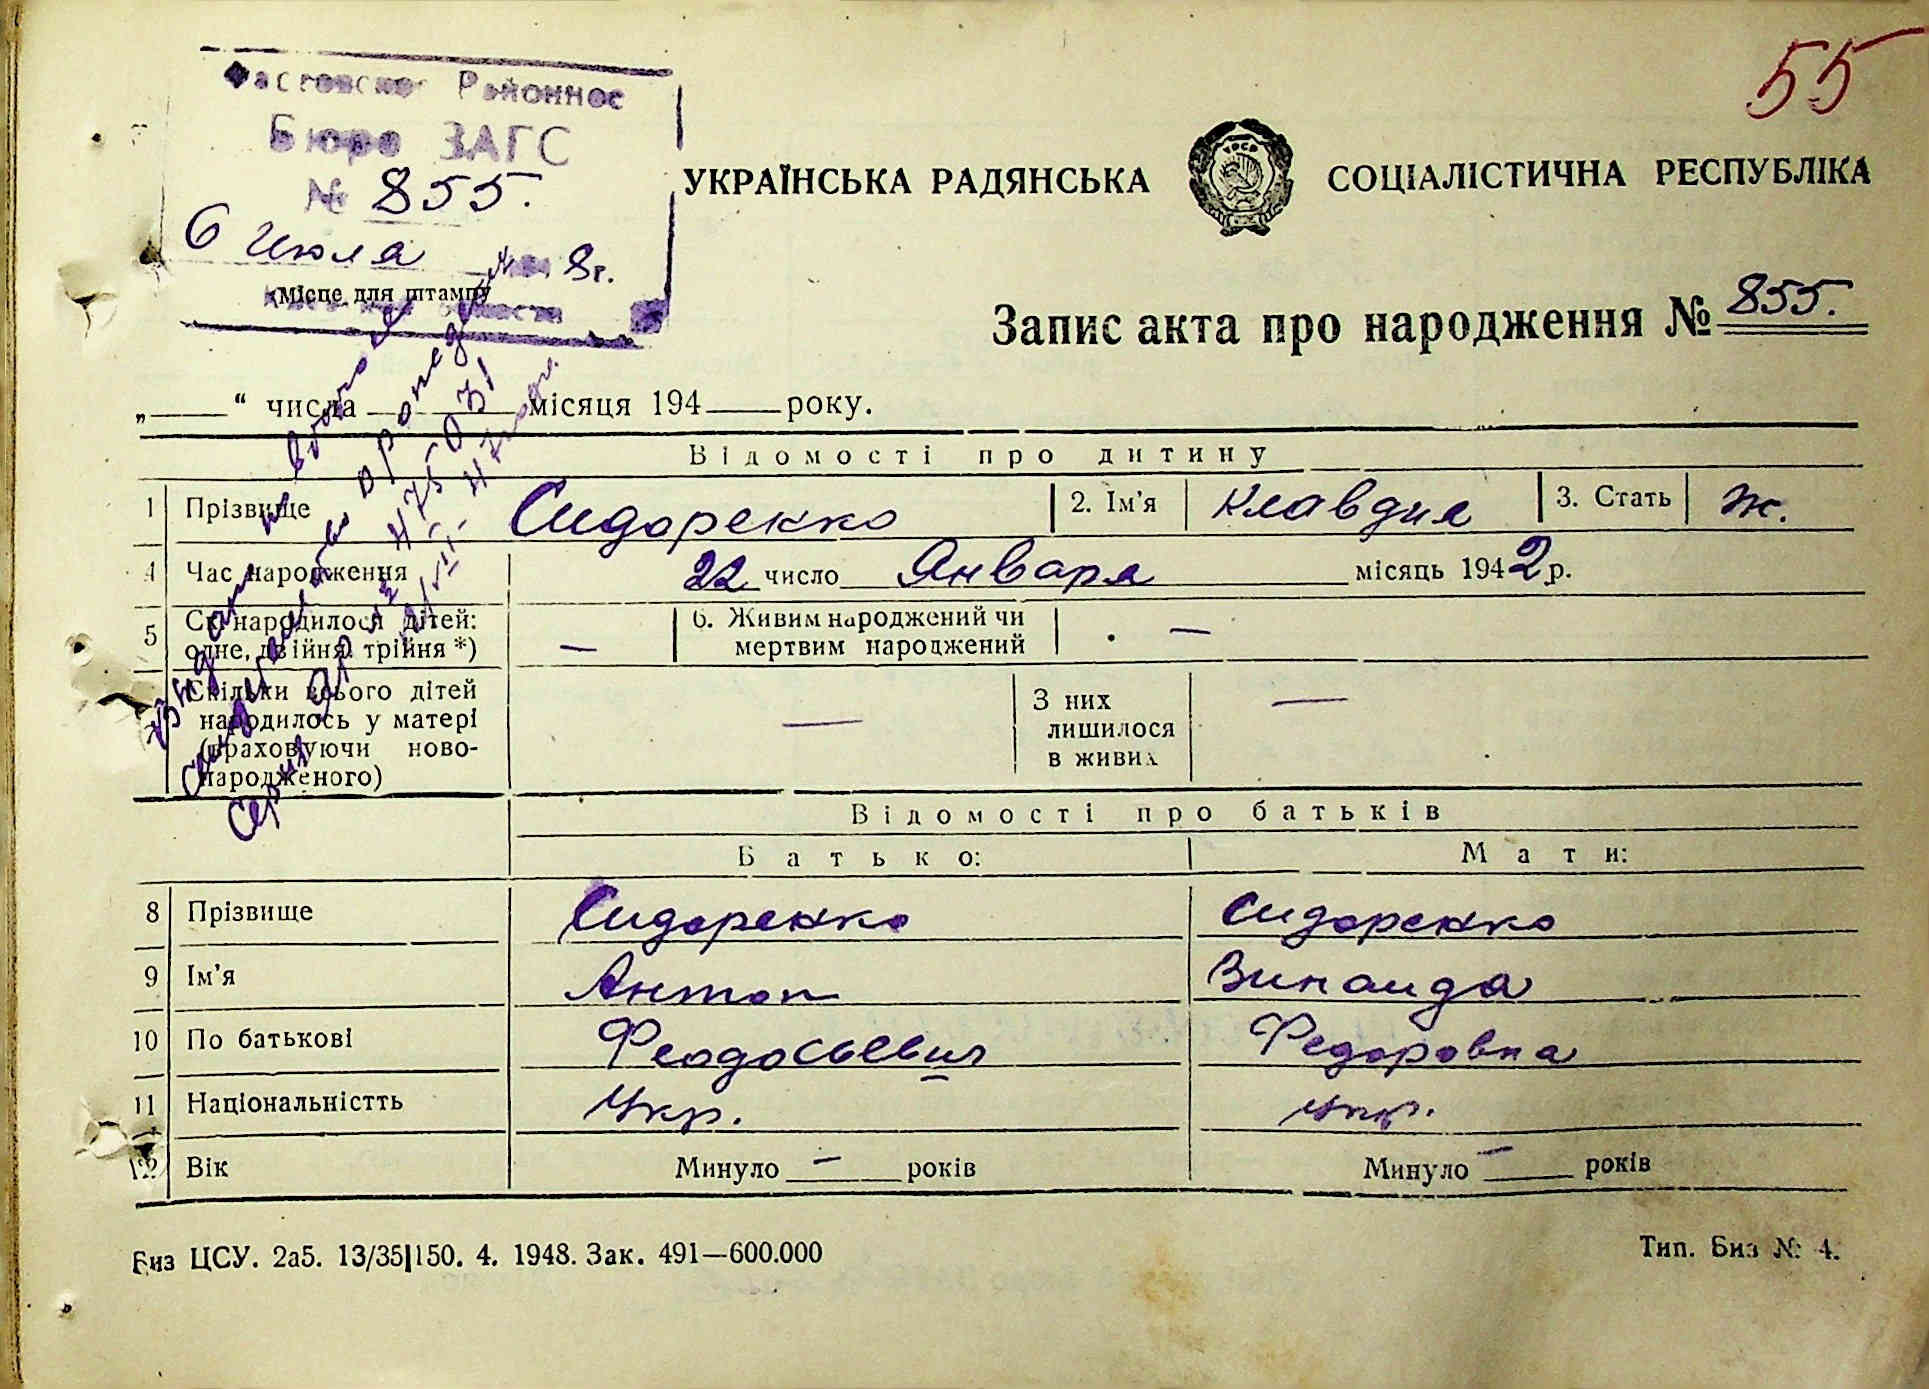 55
Фастовское Районное
Бюро ЗАГС
№ 855.
6 Июля 8 г.
(Місце для штампу
области
УКРАЇНСЬКА РАДЯНСЬКА СОЦІАЛІСТИЧНА РЕСПУБЛІКА
УРСР
Запис акта про народження № 855.
„ “ числа місяця 194 року.
Відомості про дитину
1 Прізвище Сидоренко 2. Ім'я Клавдия 3. Стать ж.
4 Час народження 22 число Января місяць 1942 р.
5 Скі народилося дітей: одне, двійня, трійня *) — 6. Живим народжений чи мертвим народжений —
7 Скільки всього дітей народилось у матері (враховуючи новонародженого) — З них лишилося в живих —
Відомості про батьків
Батько: Мати:
8 Прізвище Сидоренко Сидоренко
9 Ім'я Антон Зинаида
10 По батькові Феодосьевич Федоровна
11 Національністть Укр. укр.
12 Вік Минуло — років Минуло — років
Биз ЦСУ. 2а5. 13/35|150. 4. 1948. Зак. 491—600.000
Тип. Биз № 4.